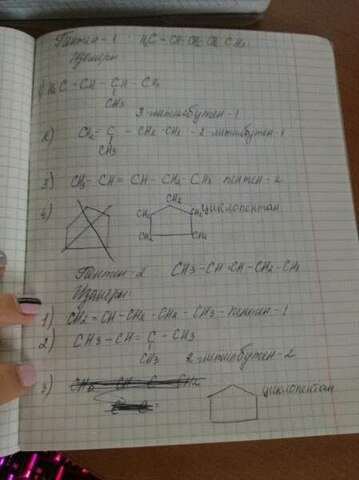 Пентен-1 H2C - CH - CH2 CH2 CH3
Изомеры
1) H2C - CH - CH - CH3
CH3
3-метилбутен-1
2) CH2 - C - CH2 - CH3 - 2-метилбутен-1
CH3
3) CH3 - CH = CH - CH2 - CH3 пентен-2
4) CH2 циклопентан
CH2 CH2
CH2 CH2
Пентен-2 CH3 - CH CH - CH2 - CH3
Изомеры
1) CH2 = CH - CH2 - CH2 - CH3 - пентен-1
2) CH3 - CH = C - CH3
CH3
2-метилбутен-2
3) циклопентан